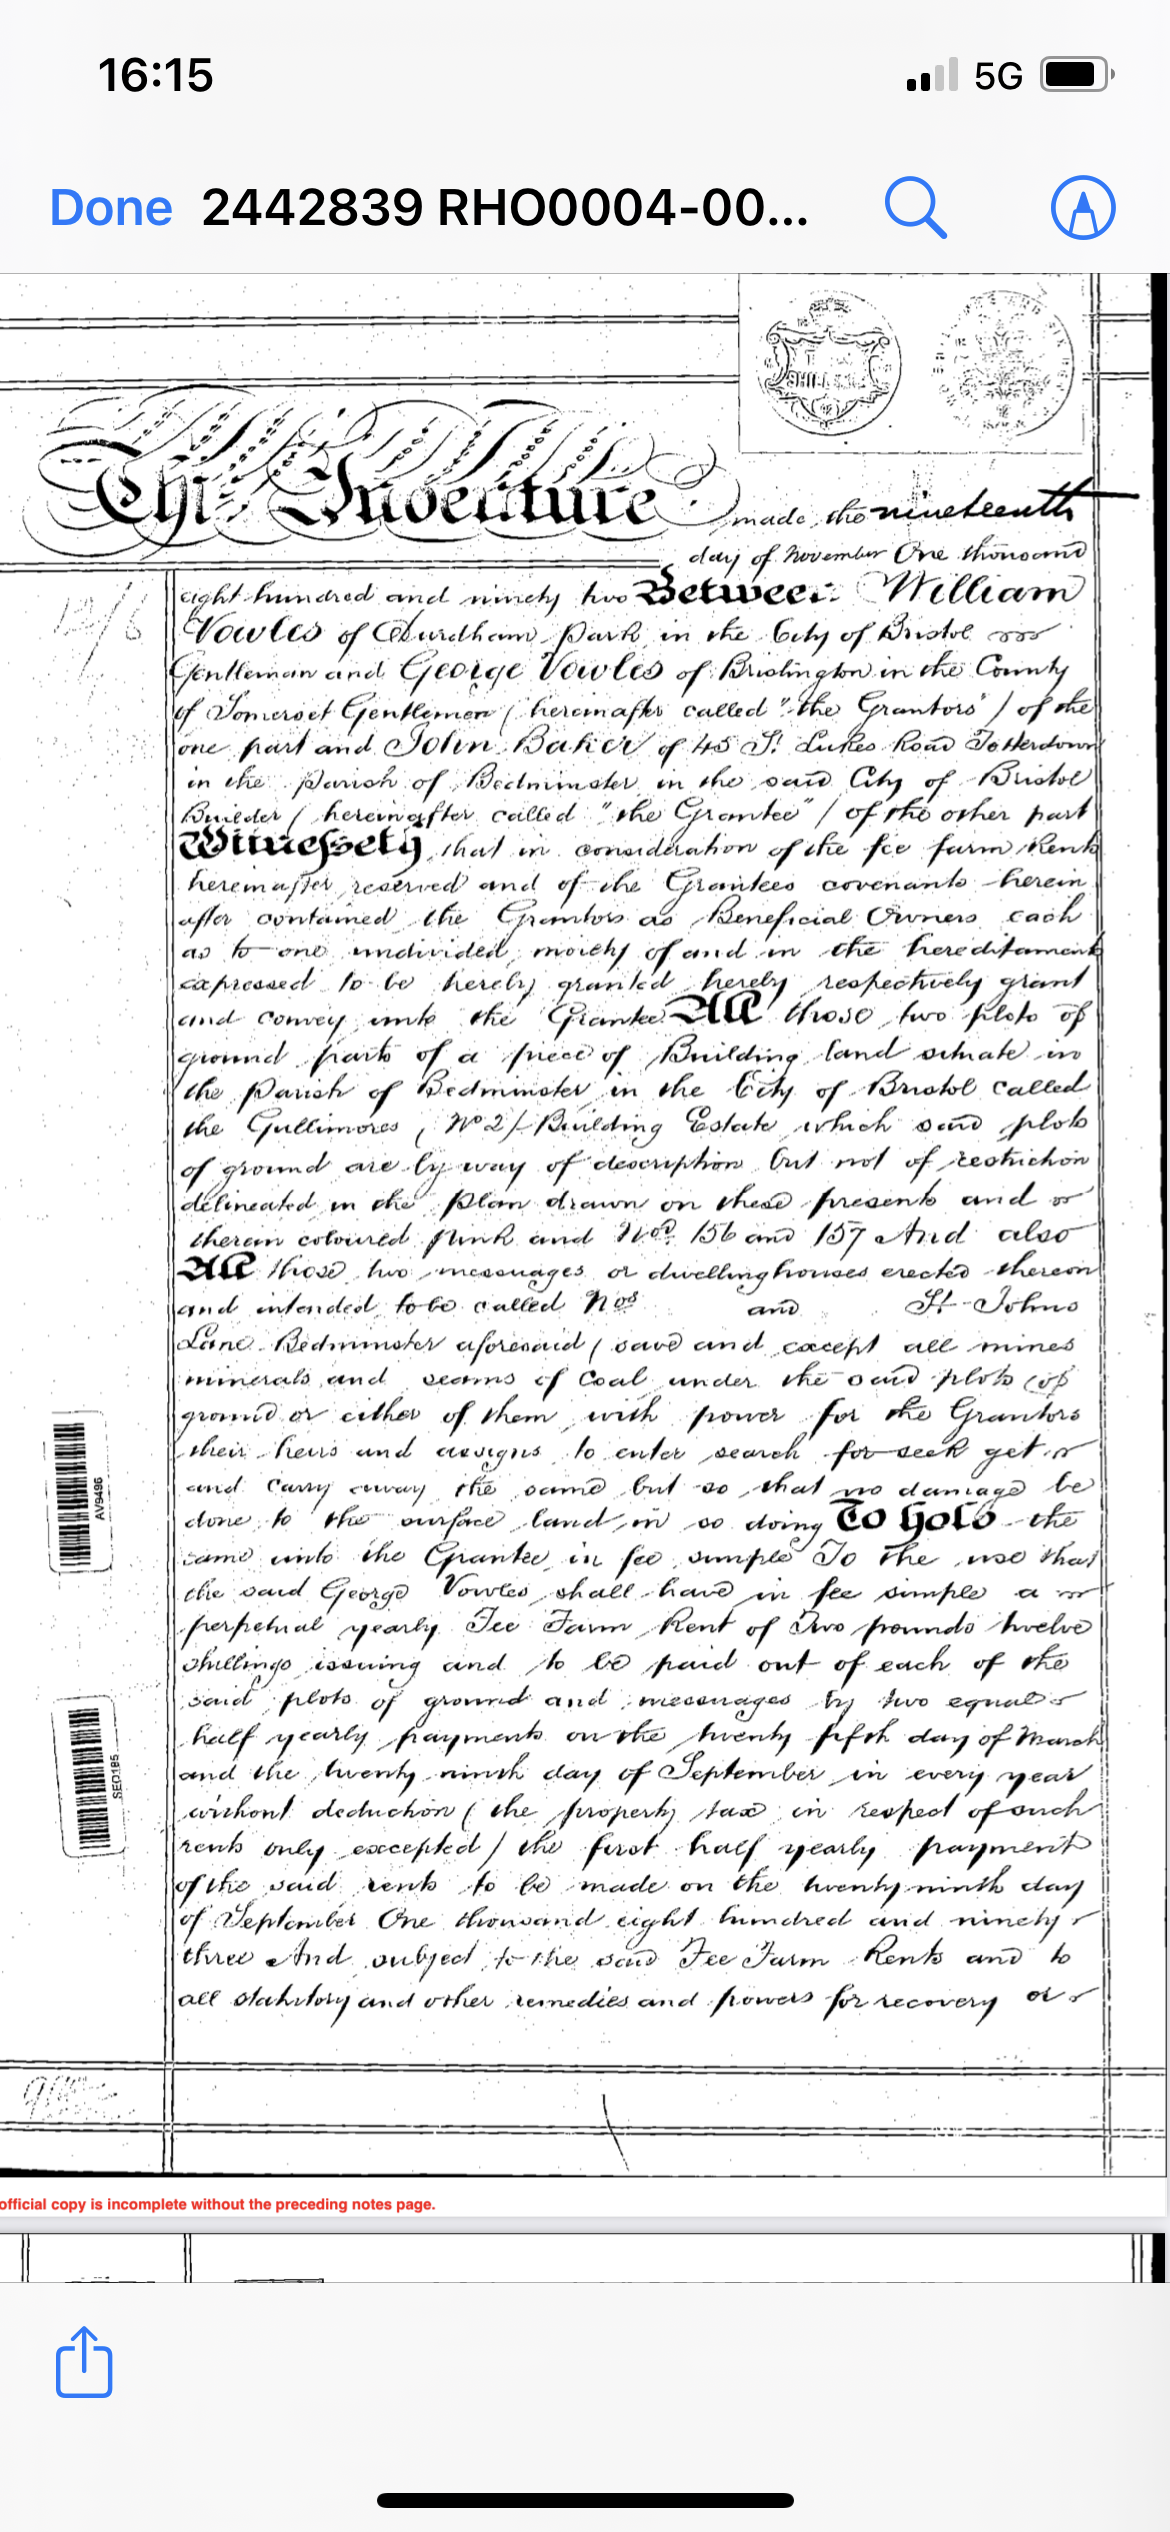 16:15
5G
Done 2442839 RHO0004-00...
This Indenture made the nineteenth
day of November One thousand
eight hundred and ninety two Between William
Vowles of Durdham Park in the City of Bristol
Gentleman and George Vowles of Brislington in the County
of Somerset Gentlemen (hereinafter called "the Grantors") of the
one part and John Baker of 45 St. Lukes Road Totterdown
in the Parish of Bedminster in the said City of Bristol
Builder (hereinafter called "the Grantee") of the other part
Witnesseth that in consideration of the fee farm Rents
hereinafter reserved and of the Grantees covenants herein
after contained the Grantors as Beneficial Owners each
as to one undivided moiety of and in the hereditaments
expressed to be hereby granted hereby respectively grant
and convey unto the Grantee All those two plots of
ground parts of a piece of Building land situate in
the Parish of Bedminster in the City of Bristol called
the Gullimores (No 2) Building Estate which said plots
of ground are by way of description but not of restriction
delineated in the plan drawn on these presents and
therein coloured pink and Nos. 156 and 157 And also
All those two messuages or dwellinghouses erected thereon
and intended to be called Nos and St Johns
Lane Bedminster aforesaid (save and except all mines
minerals and seams of Coal under the said plots of
ground or either of them with power for the Grantors
their heirs and assigns to enter search for seek get
and carry away the same but so that no damage be
done to the surface land in so doing To Hold the
same unto the Grantee in fee simple To the use that
the said George Vowles shall have in fee simple a
perpetual yearly Fee Farm Rent of Two pounds twelve
shillings issuing and to be paid out of each of the
said plots of ground and messuages by two equal
half yearly payments on the twenty fifth day of March
and the twenty ninth day of September in every year
without deduction (the property tax in respect of such
rents only excepted) the first half yearly payment
of the said rents to be made on the twenty ninth day
of September One thousand eight hundred and ninety
three And subject to the said Fee Farm Rents and to
all statutory and other remedies and powers for recovery or
12/6
AV9496
SE0185
official copy is incomplete without the preceding notes page.